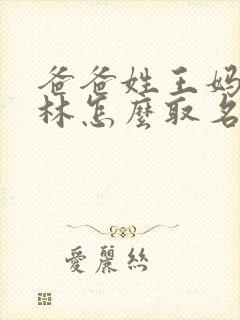 爸爸姓王妈
林怎麼取名
愛麗絲